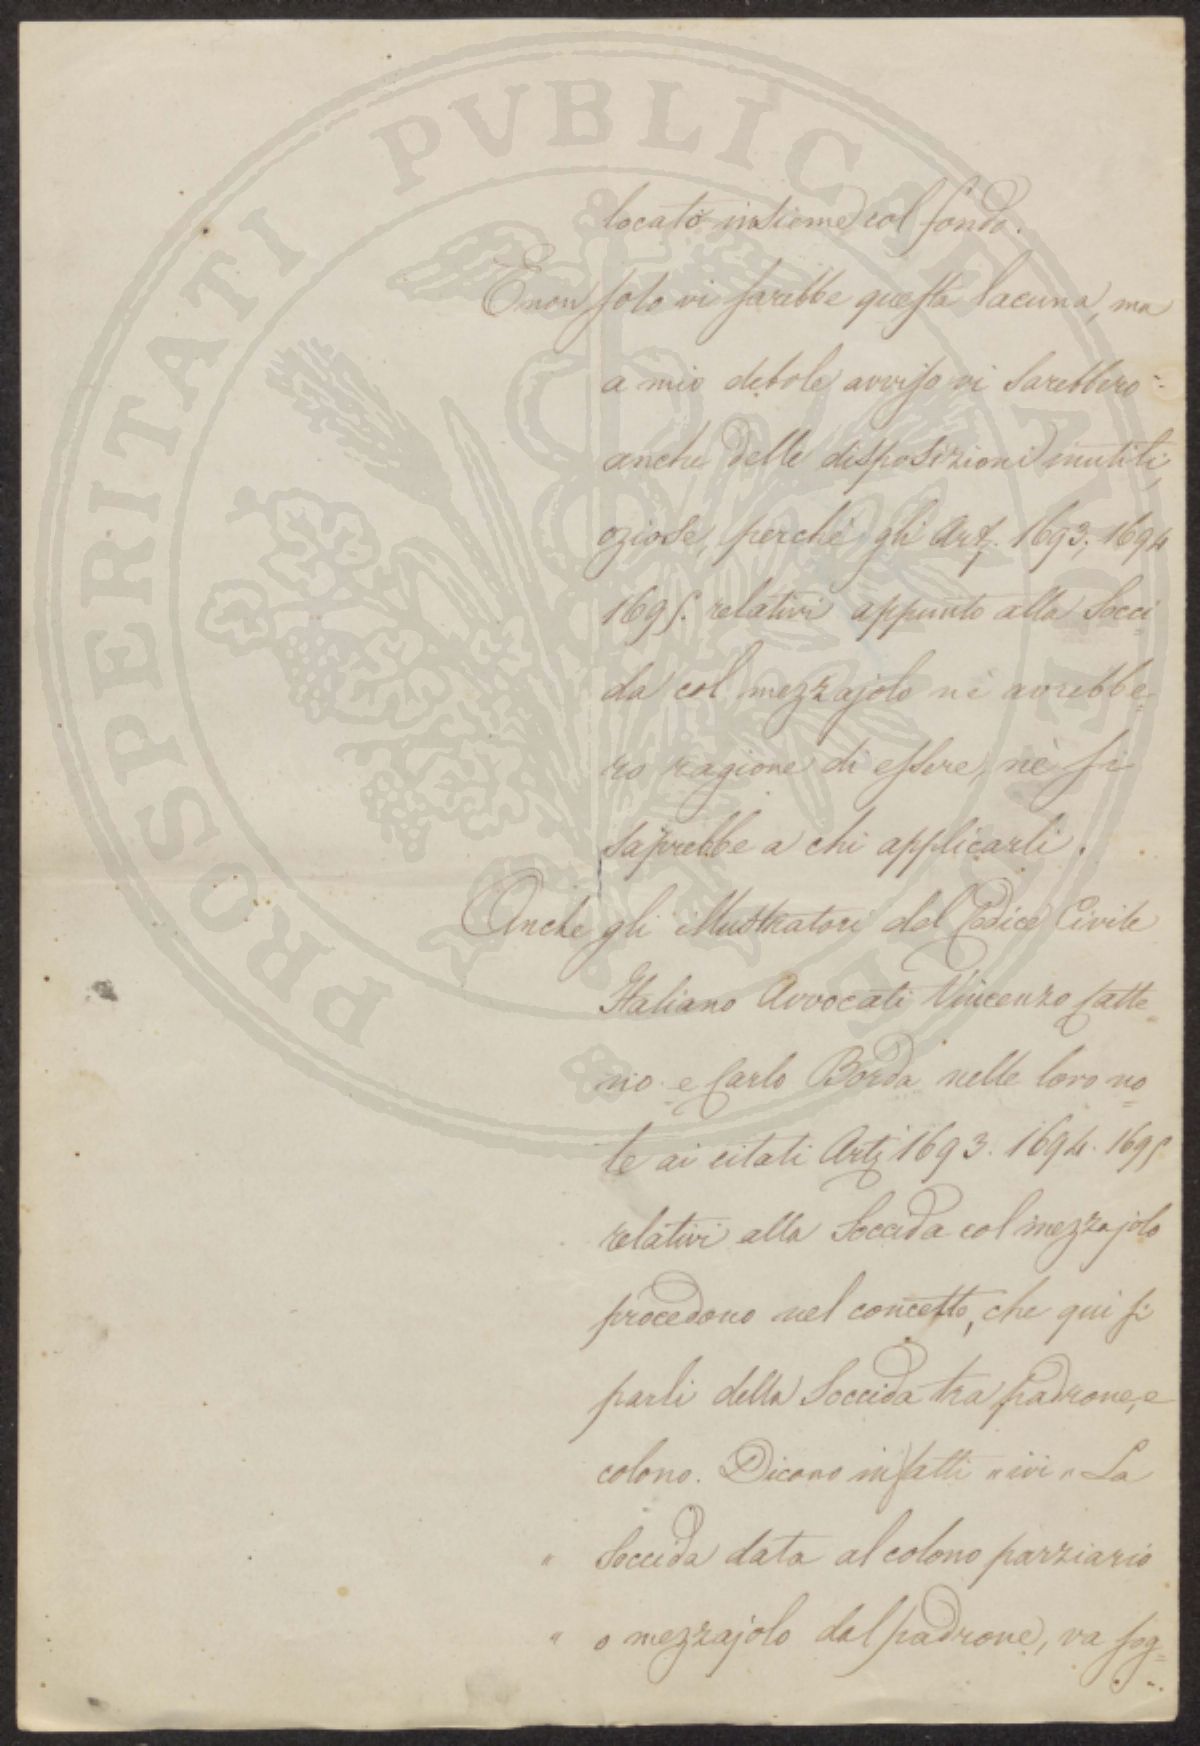 PROSPERITATI PVBLICAE AVGENDAE
locato insieme col fondo.
E non solo vi sarebbe questa lacuna, ma
a mio debole avviso vi sarebbero
anche delle disposizioni inutili,
oziose, perchè gli Art. 1693. 1694
1695. relativi appunto alla Socci=
da col mezzajolo nè avrebbe=
ro ragione di essere, nè si
saprebbe a chi applicarli.
Anche gli illustratori del Codice Civile
Italiano Avvocati Vincenzo Catte=
nio e Carlo Borda nelle loro no=
te ai citati Arti 1693. 1694. 1695
relativi alla Soccida col mezzajolo
procedono nel concetto, che qui si
parli della Soccida tra padrone, e
colono. Dicono infatti " ivi " La
" Soccida data al colono parziario
" o mezzajolo dal padrone, va sog=